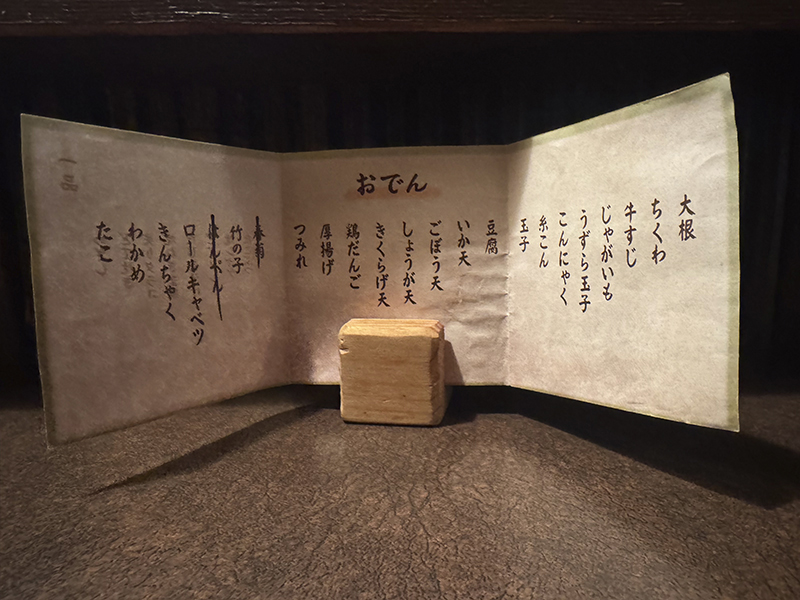 おでん
大根
ちくわ
牛すじ
じゃがいも
うずら玉子
こんにゃく
糸こん
玉子
豆腐
いか天
ごぼう天
しょうが天
きくらげ天
鶏だんご
厚揚げ
つみれ
春菊
竹の子
はんぺん
ロールキャベツ
きんちゃく
わかめ
たこ
一品